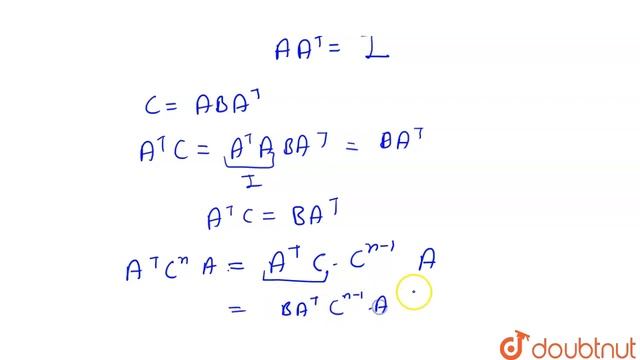 AAᵀ = I
C = ABAᵀ
AᵀC = AᵀA BAᵀ = BAᵀ
I
AᵀC = BAᵀ
AᵀCⁿ A = Aᵀ C · Cⁿ⁻¹ A
= BAᵀ Cⁿ⁻¹ · A
doubtnut